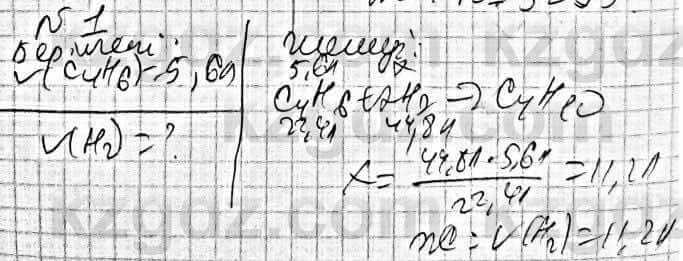 № 1
Берілгені:
V(C4H6) = 5,6л
V(H2) = ?
Шешуі:
5,6л x
C4H6 + 2H2 → C4H10
22,4л 44,8л
x = 44,8л · 5,6л / 22,4л = 11,2л
жс: V(H2) = 11,2л
kzgdz.com